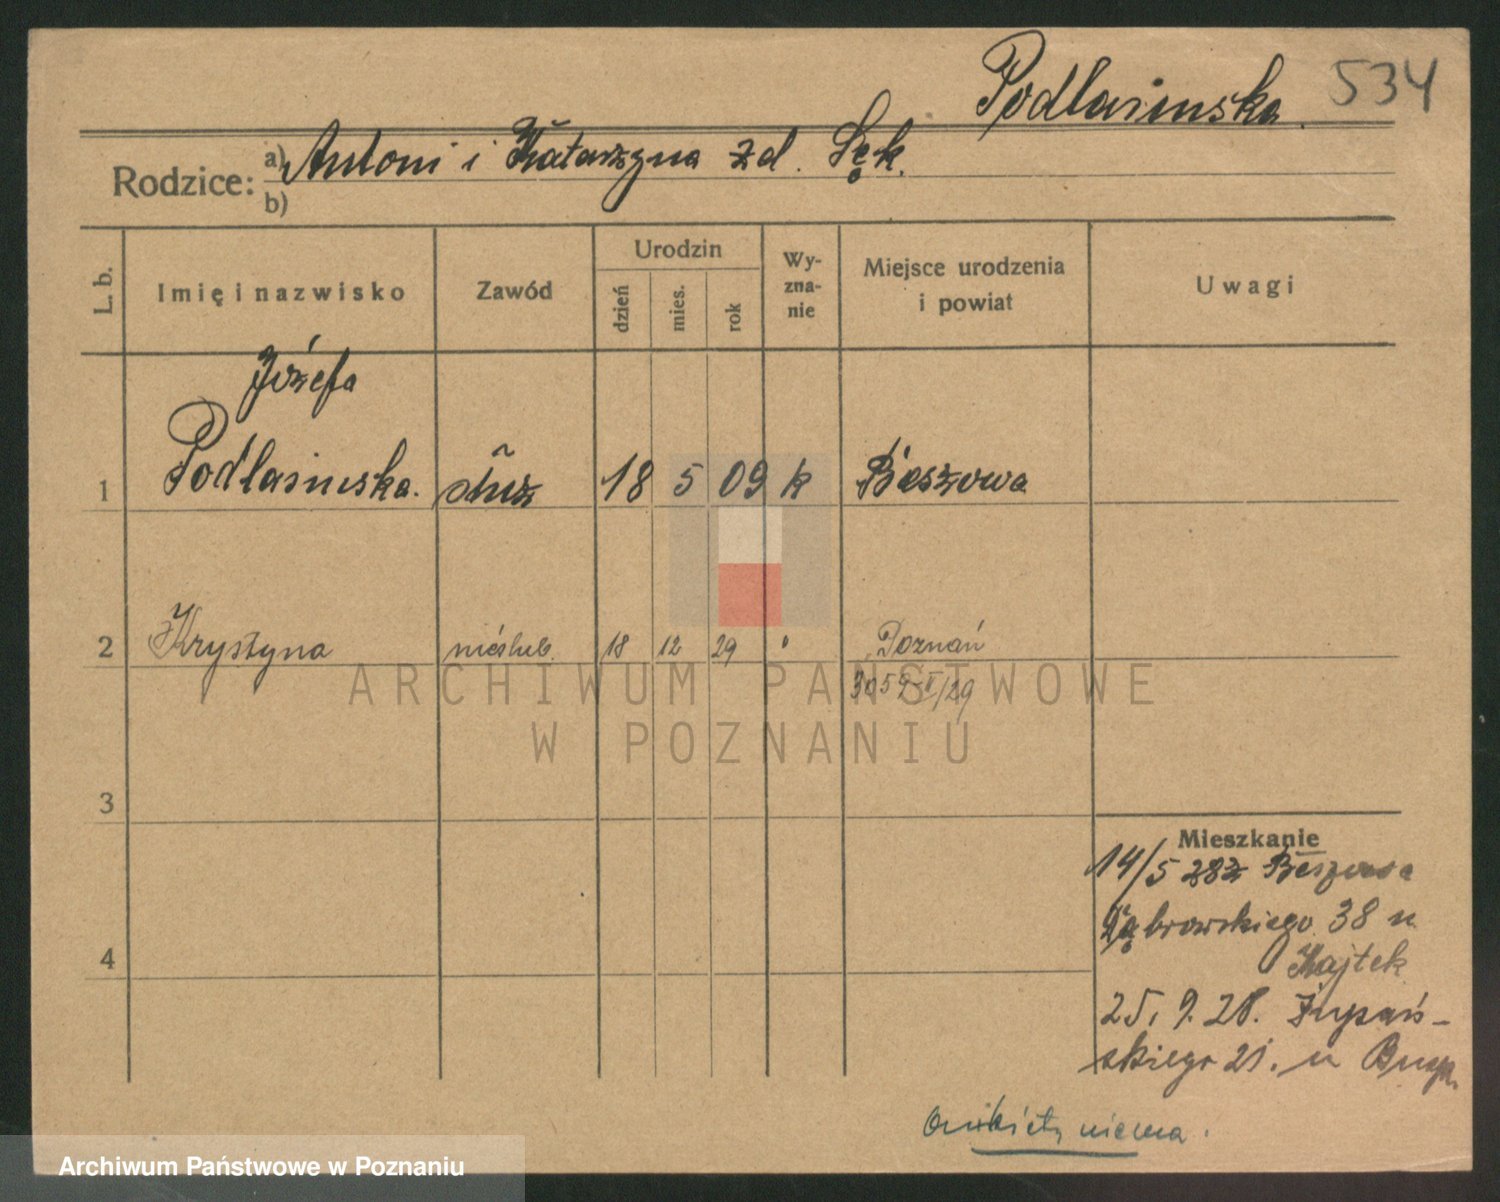 Podlasinska 534
Rodzice: a) Antoni i Katarzyna z d. Sęk.
b)
L. b. Imię i nazwisko Zawód Urodzin dzień mies. rok Wy-zna-nie Miejsce urodzenia i powiat Uwagi
Józefa
1 Podlasinska. służ 18 5 09 k Beszowa
2 Krystyna nieślub. 18 12 29 " Poznań
ARCHIWUM PAŃSTWOWE
W POZNANIU
3
Mieszkanie
14/5 28 z Beszowa
Dąbrowskiego 38 u
4
Majtek
25. 9. 28.
skiego 21. u
niema.
Archiwum Państwowe w Poznaniu